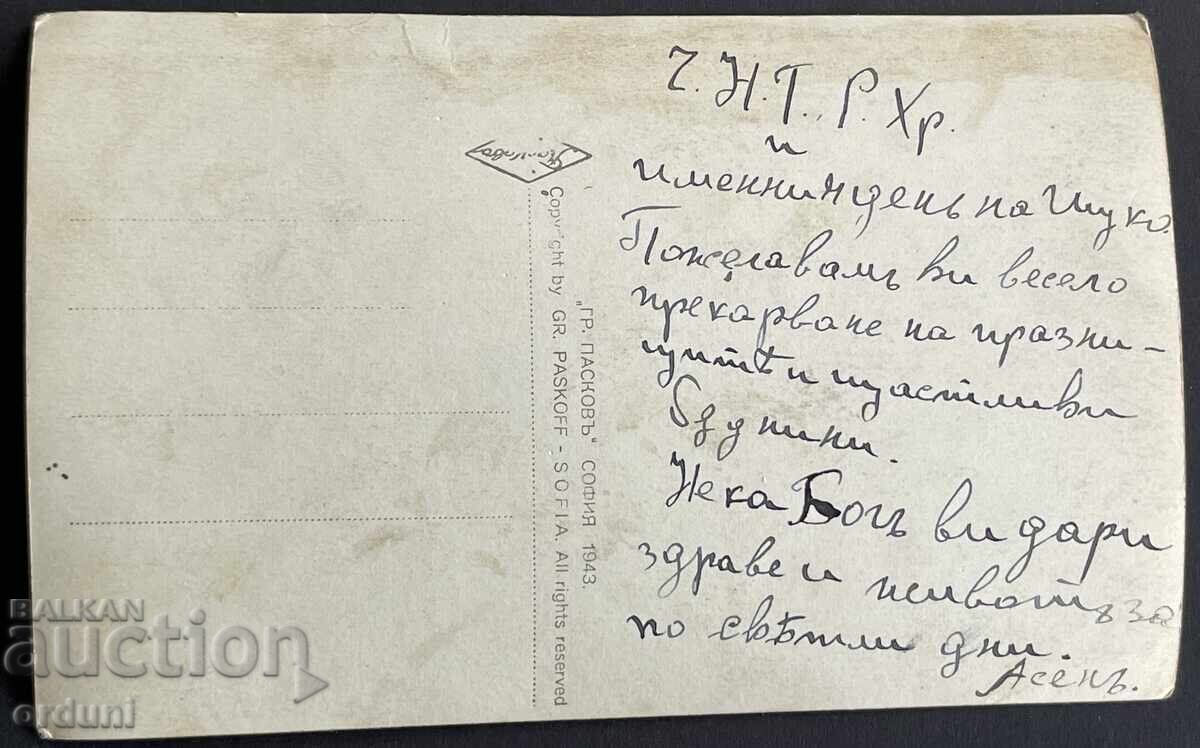 Ч. Н. Г. Р. Хр.
и
именния день на
Пожелавамъ ви весело
прекарване на празни-
цитѣ и щастливи
бѫднини.
Нека Богъ ви дари
здраве и животъ за
по свѣтли дни.
Асенъ.
Пасковъ
Copyright by GR. PASKOFF - SOFIA. All rights reserved
„ГР. ПАСКОВЪ" СОФИЯ 1943.
BALKAN
auction
orduni